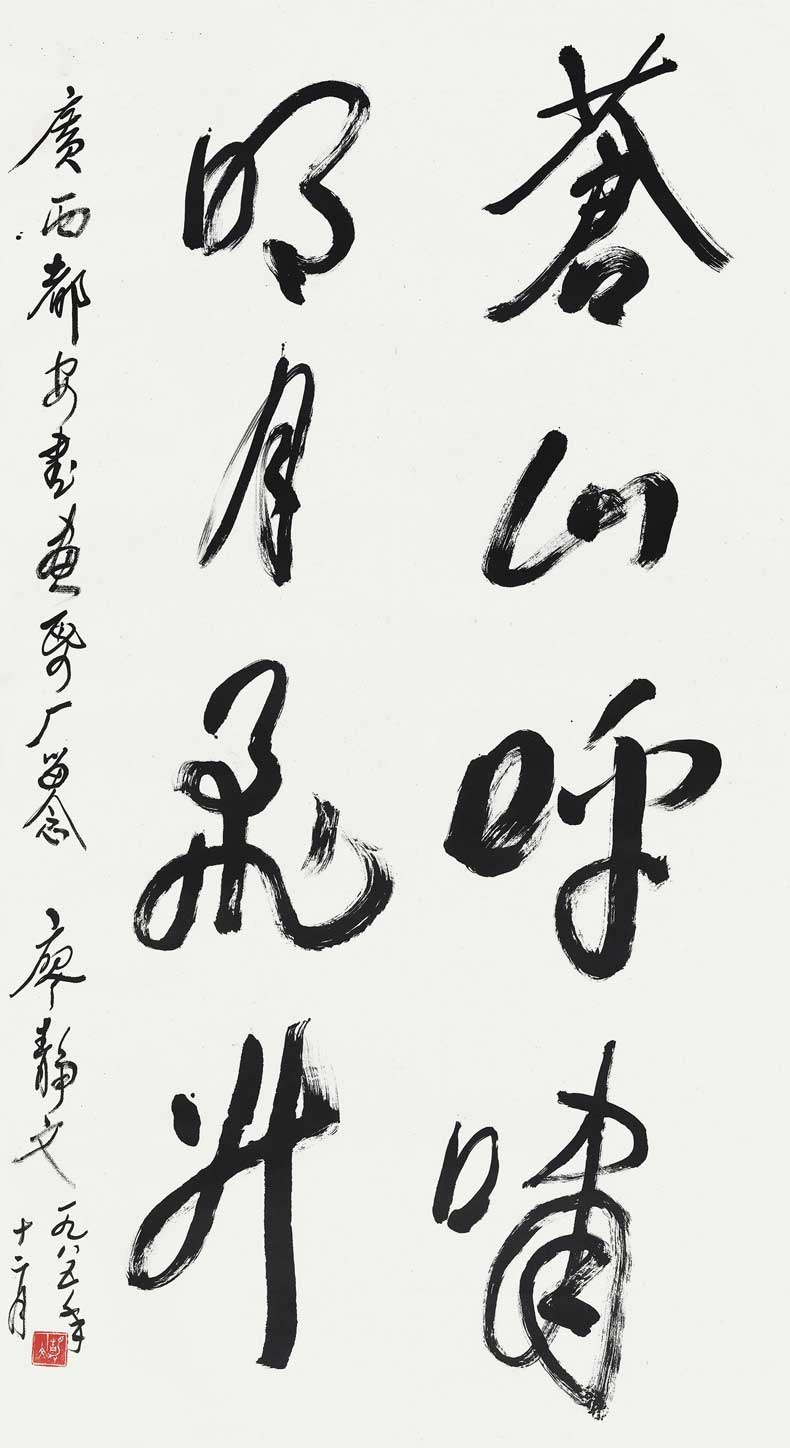 蒼山呼嘯
明月飛升
廣西都安書畫紙厂留念 廖靜文 一九八五年
十二月